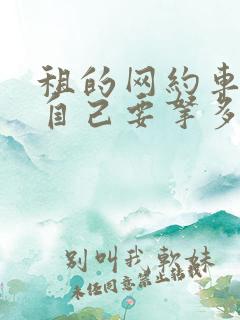 租的网約車
自己要拏多
别叫我軟妹
未经同意禁止转载